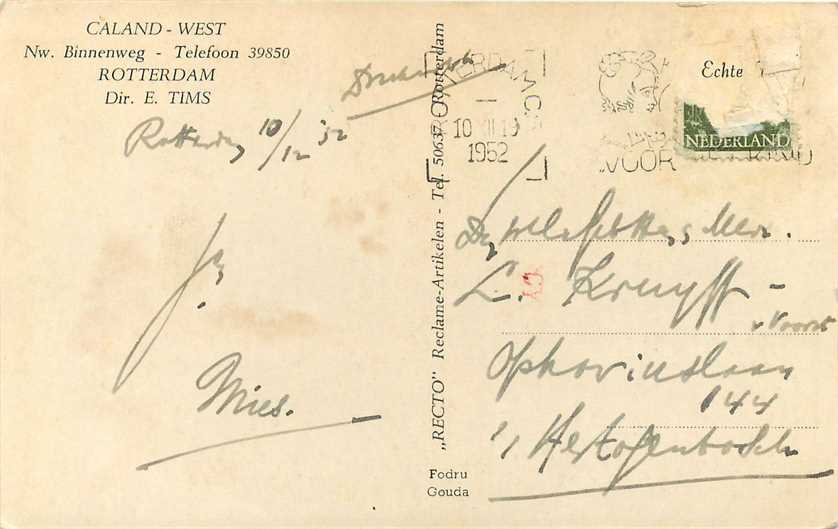 CALAND - WEST
Nw. Binnenweg - Telefoon 39850
ROTTERDAM
Dir. E. TIMS
Rotterdam 10/12 '52
Mies.
„RECTO” Reclame-Artikelen - Tel. 50637 Rotterdam
Fodru
Gouda
10 XII 19
1952
VOOR
Echte
NEDERLAND
L. Kruyff -
v Voorst
Ophoviuslaan
144
's Hertogenbosch